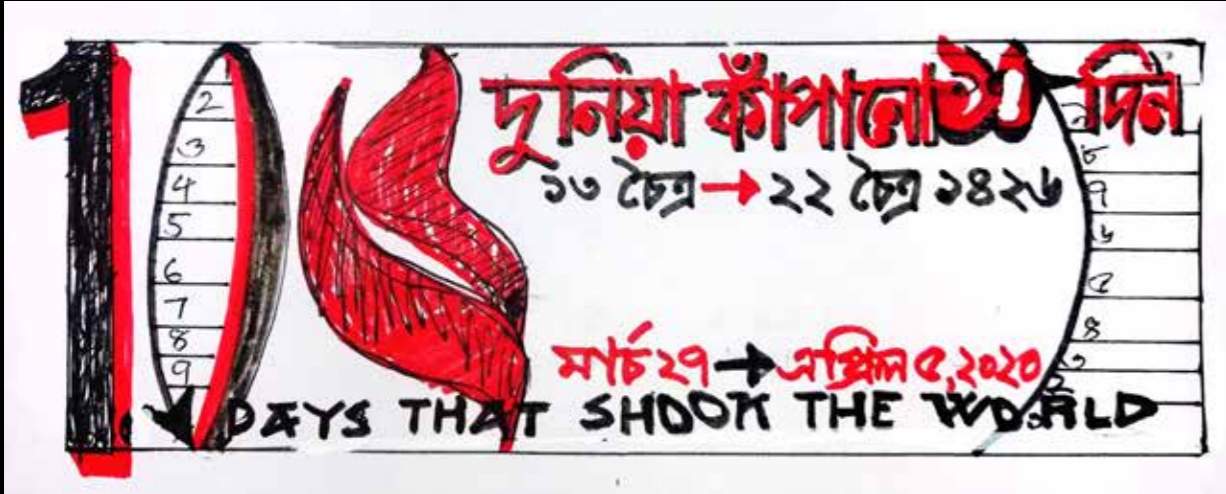 10
1
2
3
4
5
6
7
8
9
দুনিয়া কাঁপানো ১০ দিন
১৩ চৈত্র → ২২ চৈত্র ১৪২৬
মার্চ ২৭ → এপ্রিল ৫, ২০২০
DAYS THAT SHOOK THE WORLD